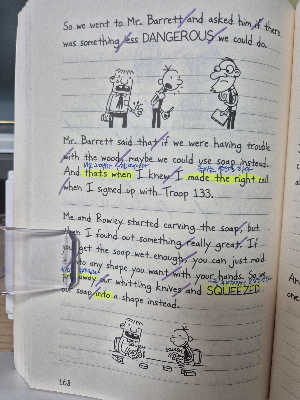 So we went to Mr. Barrett and asked him if there
was something less DANGEROUS we could do.
Mr. Barrett said that if we were having trouble
with the wood, maybe we could use soap instead.
And that's when I knew I made the right call
when I signed up with Troop 133.
Me and Rowley started carving the soap, but
then I found out something really great. If
you get the soap wet enough, you can just mold
into any shape you want with your hands. So we
put away our whittling knives and SQUEEZED
our soap into a shape instead.
168